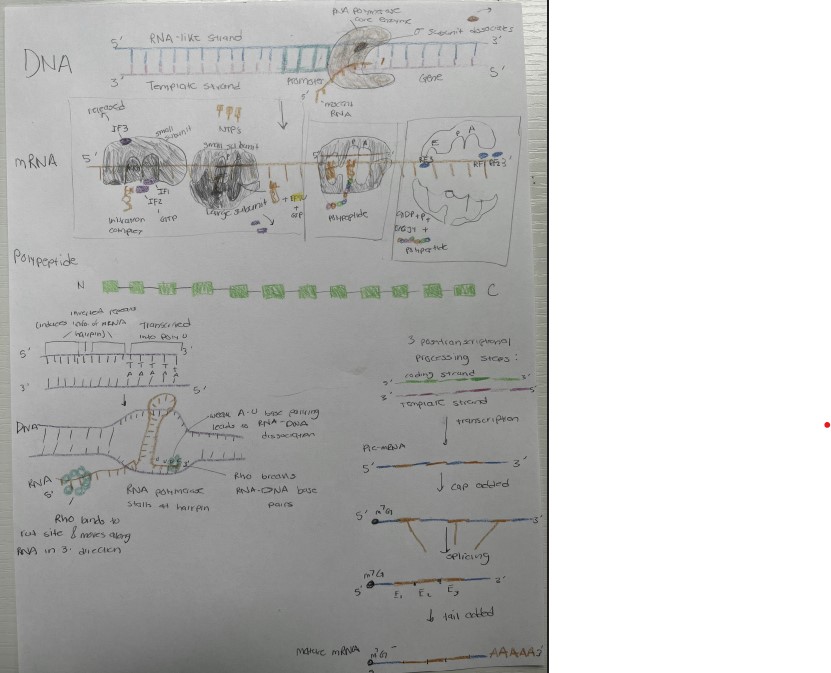 RNA polymerase
core enzyme
σ subunit dissociates
5' RNA-like strand 3'
DNA
3' Template strand Promoter Gene 5'
3'
RNA
released
IF3
small
subunit
NTPs
small subunit
mRNA
5'
E P A
RF1 RF2 3'
IF1
IF2
GTP
Initiation
complex
Large subunit
+
GTP
polypeptide
GDP + Pi
+
polypeptide
Polypeptide
N C
inverted repeats
(induces info of mRNA
hairpin)
Transcribed
into poly U
5' 3'
T T T T T
A A A A A
3' 5'
DNA
weak A-U base pairing
leads to RNA-DNA
dissociation
RNA
5'
RNA polymerase
stalls at hairpin
Rho breaks
RNA-DNA base
pairs
Rho binds to
rut site & moves along
RNA in 3' direction
3 posttranscriptional
processing steps:
coding strand
5' 3'
3' 5'
Template strand
transcription
Pre-mRNA
5' 3'
cap added
5' m⁷G 3'
splicing
m⁷G
5' 3'
E₁ E₂ E₃
tail added
Mature mRNA m⁷G AAAAA 3'